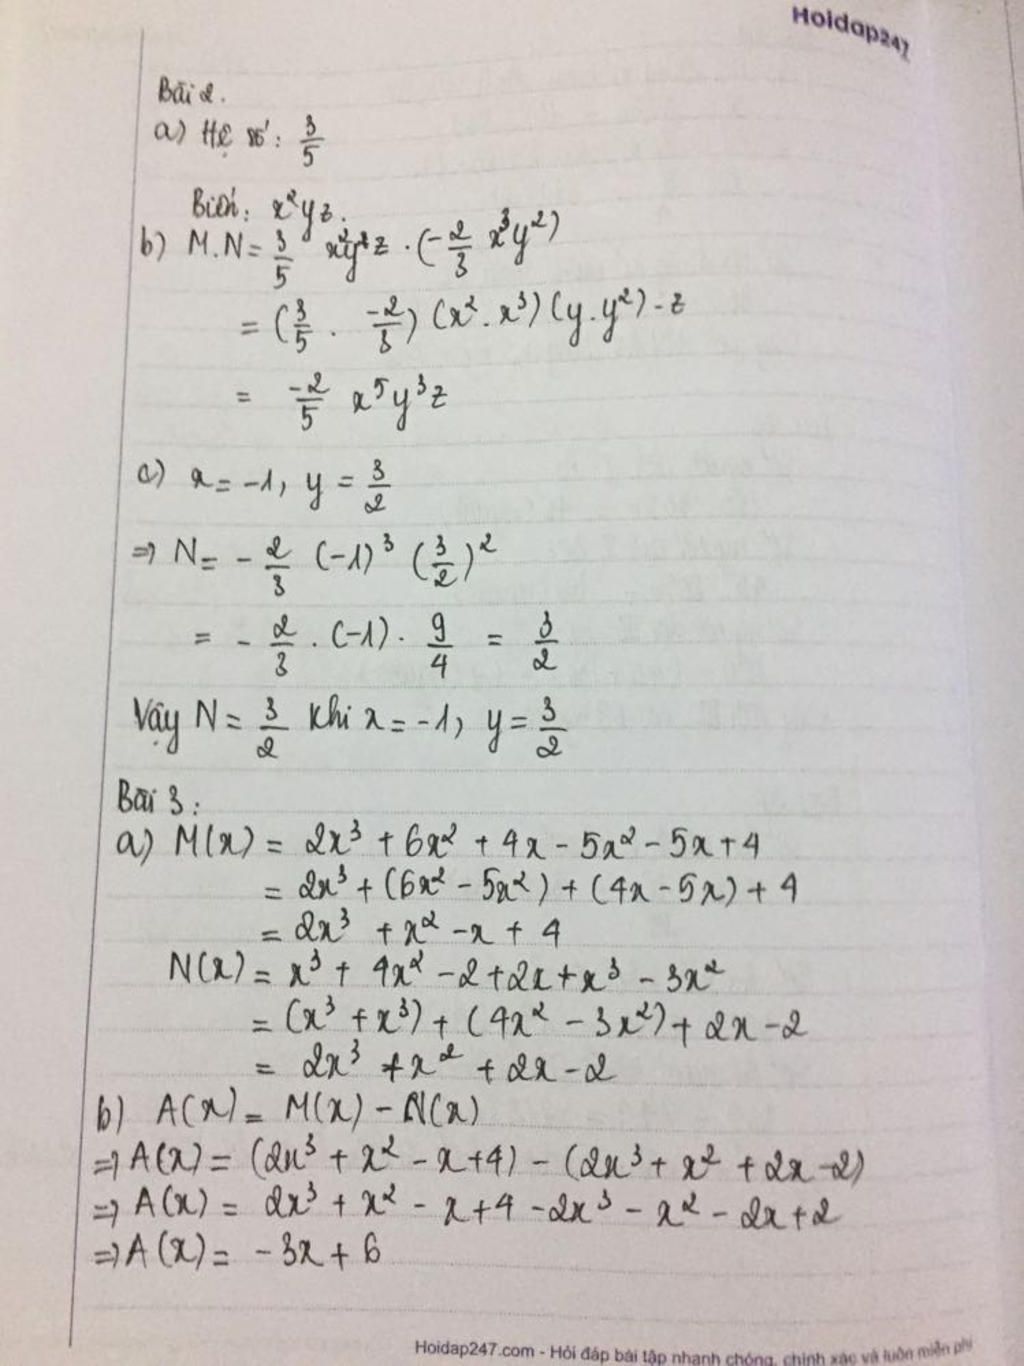 Hoidap247
Bài 2.
a) Hệ số: 3/5
Biến: x²yz.
b) M.N = 3/5 x²yz . (-2/3 x³y²)
= (3/5 . -2/3) (x² . x³) (y . y²) . z
= -2/5 x⁵y³z
c) x = -1, y = 3/2
⇒ N = - 2/3 (-1)³ (3/2)²
= - 2/3 . (-1) . 9/4 = 3/2
Vậy N = 3/2 khi x = -1, y = 3/2
Bài 3:
a) M(x) = 2x³ + 6x² + 4x - 5x² - 5x + 4
= 2x³ + (6x² - 5x²) + (4x - 5x) + 4
= 2x³ + x² - x + 4
N(x) = x³ + 4x² - 2 + 2x + x³ - 3x²
= (x³ + x³) + (4x² - 3x²) + 2x - 2
= 2x³ + x² + 2x - 2
b) A(x) = M(x) - N(x)
⇒ A(x) = (2x³ + x² - x + 4) - (2x³ + x² + 2x - 2)
⇒ A(x) = 2x³ + x² - x + 4 - 2x³ - x² - 2x + 2
⇒ A(x) = -3x + 6
Hoidap247.com - Hỏi đáp bài tập nhanh chóng, chính xác và luôn miễn phí